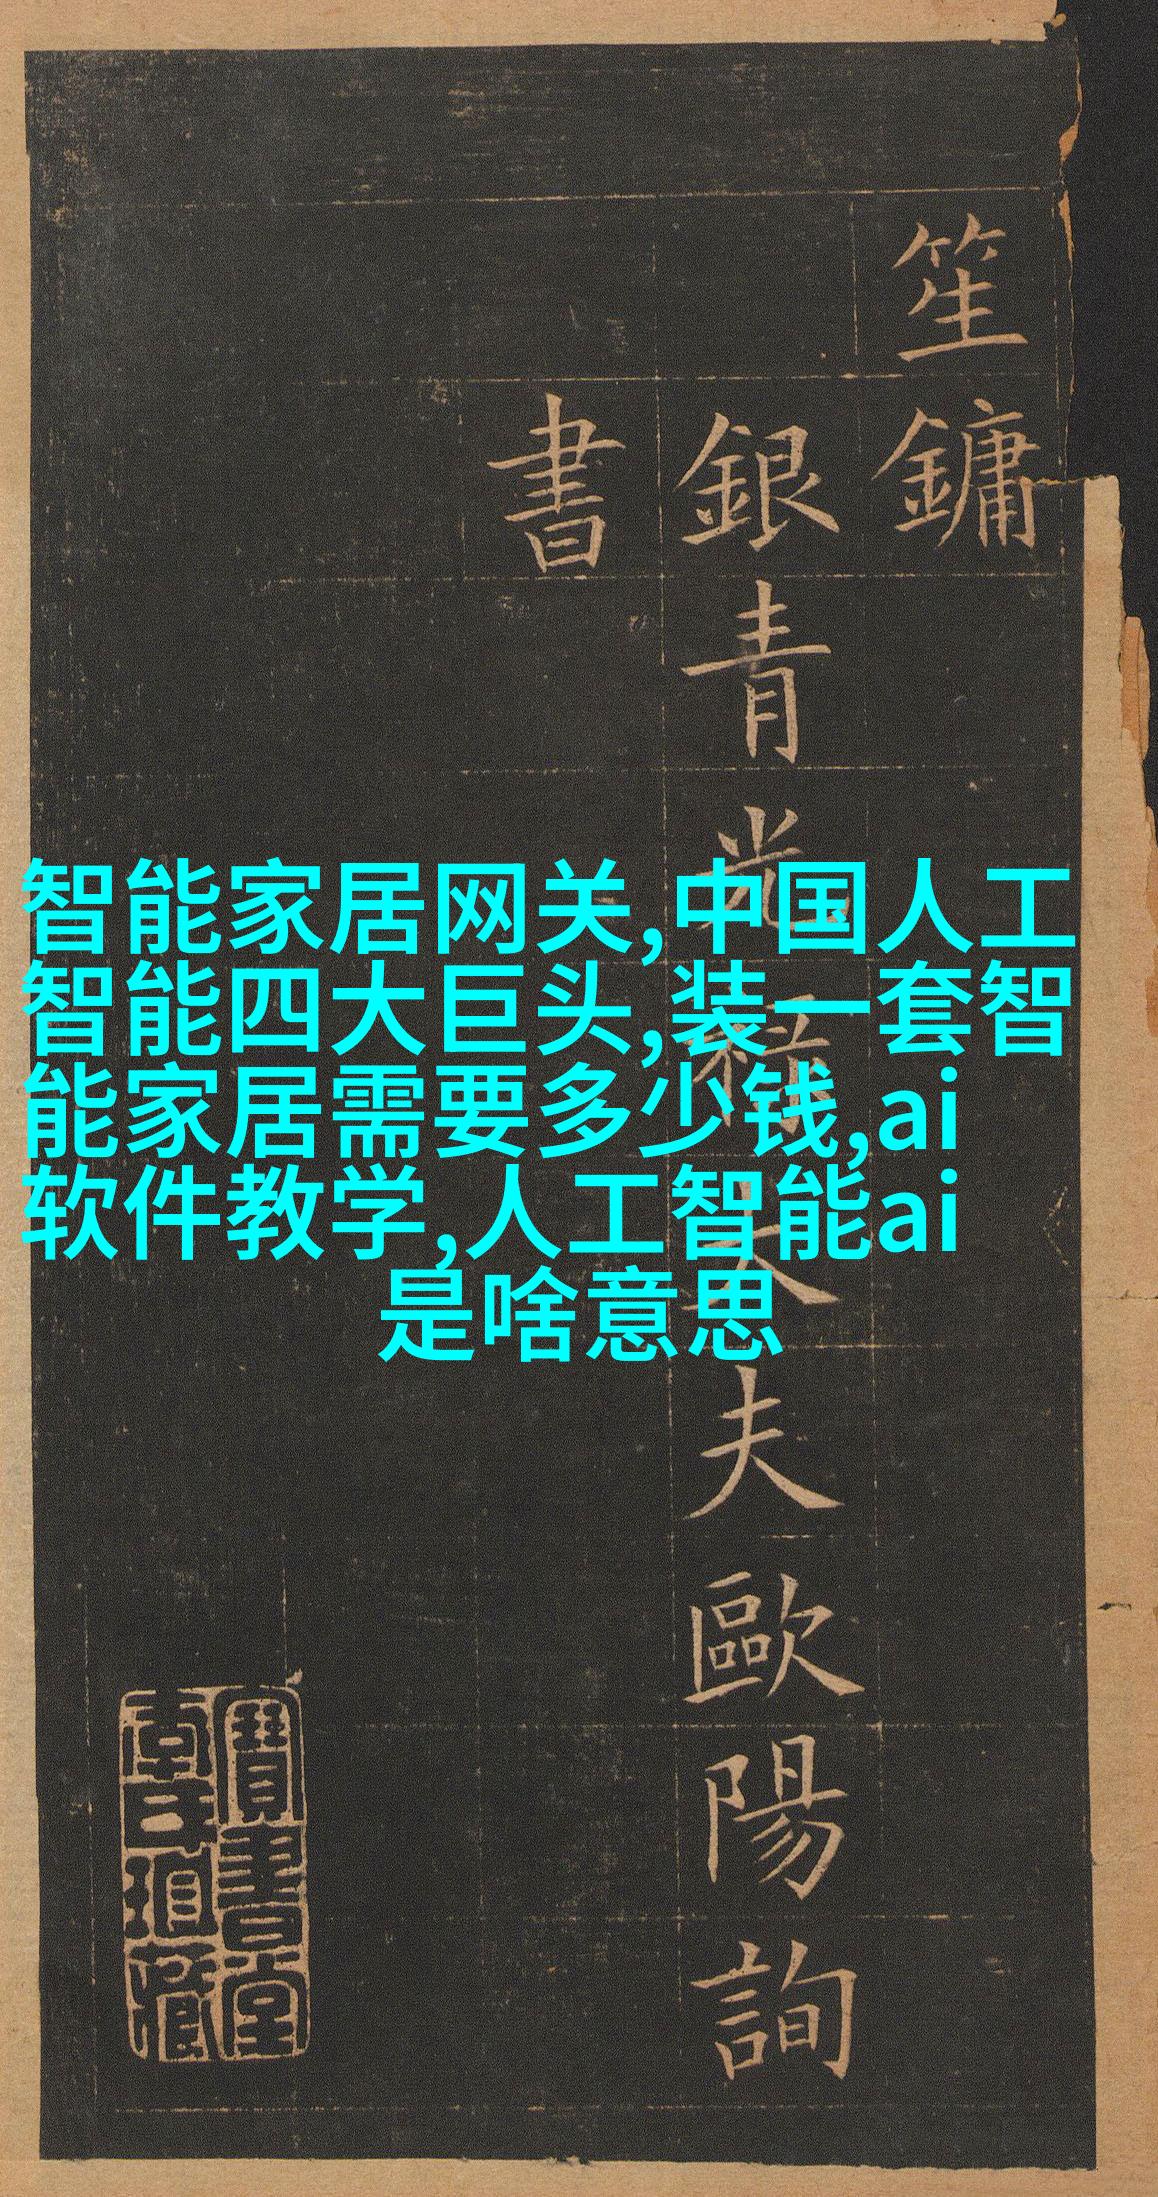 笙鏞
銀青光祿大夫歐陽詢
書
智能家居网关,中国人工
智能四大巨头,装一套智
能家居需要多少钱,ai
软件教学,人工智能ai
是啥意思